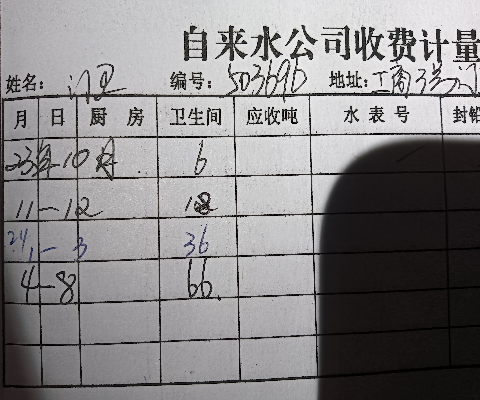 自来水公司收费计量
姓名: 门卫 编号: 503696 地址: 工商3号门
月 日 厨 房 卫生间 应收吨 水 表 号 封铅
23年10月 6
11-12 18
24,1-3 36
4-8 66.